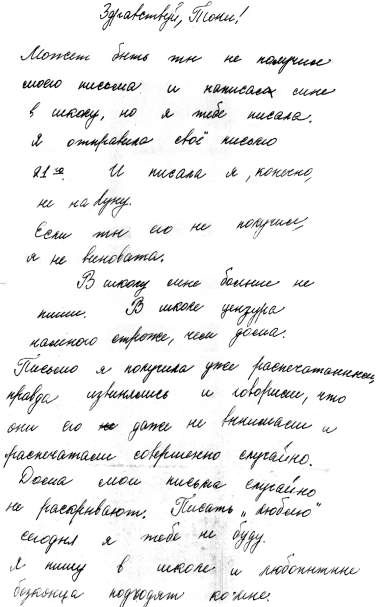 Здравствуй, Тони!
Может быть ты не получил
моего письма и написал мне
в школу, но я тебе писала.
Я отправила своё письмо
21го. И писала я, конечно,
не на Луну.
Если ты его не получил,
я не виновата.
В школу мне больше не
пиши. В школе цензура
намного строже, чем дома.
Письмо я получила уже распечатанным,
правда извинялись и говорили, что
они его даже не вынимали и
распечатали совершенно случайно.
Дома мои письма случайно
не раскрывают. Писать „люблю"
сегодня я тебе не буду.
Я пишу в школе и любопытные
без конца подходят ко мне.